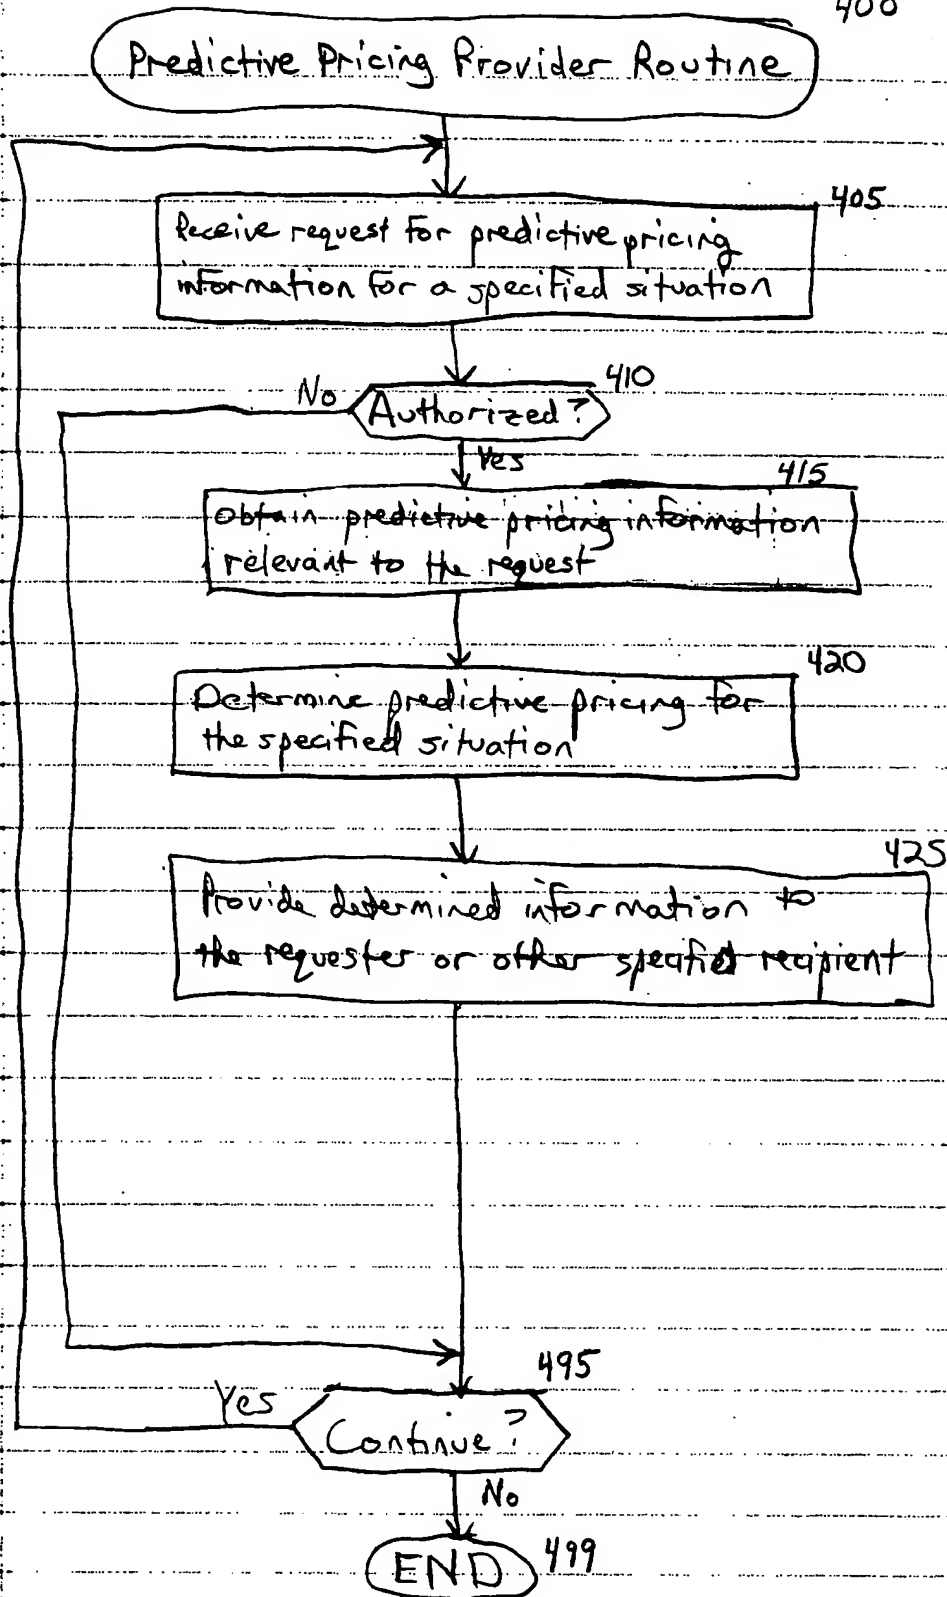 400
Predictive Pricing Provider Routine
405
Receive request for predictive pricing
information for a specified situation
410
No
Authorized?
Yes
415
Obtain predictive pricing information
relevant to the request
420
Determine predictive pricing for
the specified situation
425
Provide determined information to
the requester or other specified recipient
495
Yes
Continue?
No
END
499